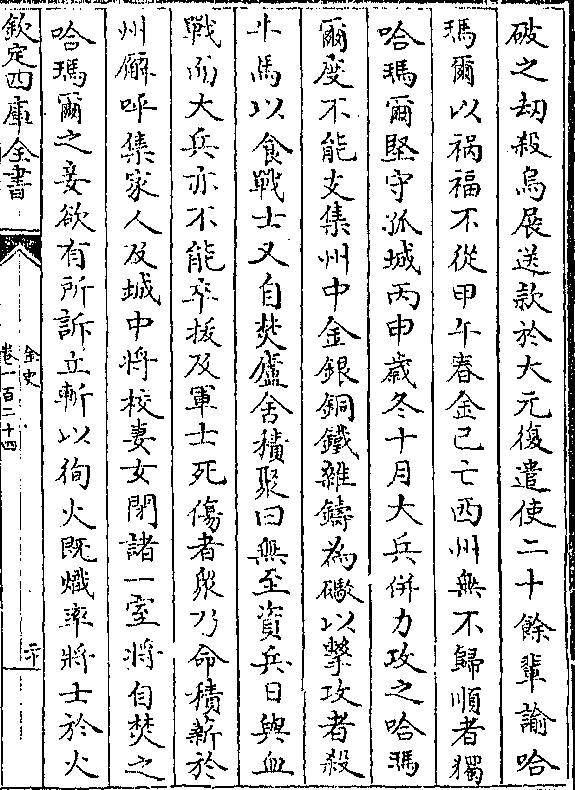 破之劫殺烏展送款於大元復遣使二十餘輩諭哈
瑪爾以禍福不從甲午春金已亡西州無不歸順者獨
哈瑪爾堅守孤城丙申歲冬十月大兵併力攻之哈瑪
爾度不能支集州中金銀銅鐵雜鑄為礮以擊攻者殺
牛馬以食戰士又自焚廬舍積聚曰無至資兵日與血
戰而大兵亦不能卒拔及軍士死傷者衆乃命積薪於
州廨呼集家人及城中將校妻女閉諸一室將自焚之
哈瑪爾之妾欲有所訴立斬以徇火既熾率將士於火
欽定四庫全書
金史
卷一百二十四